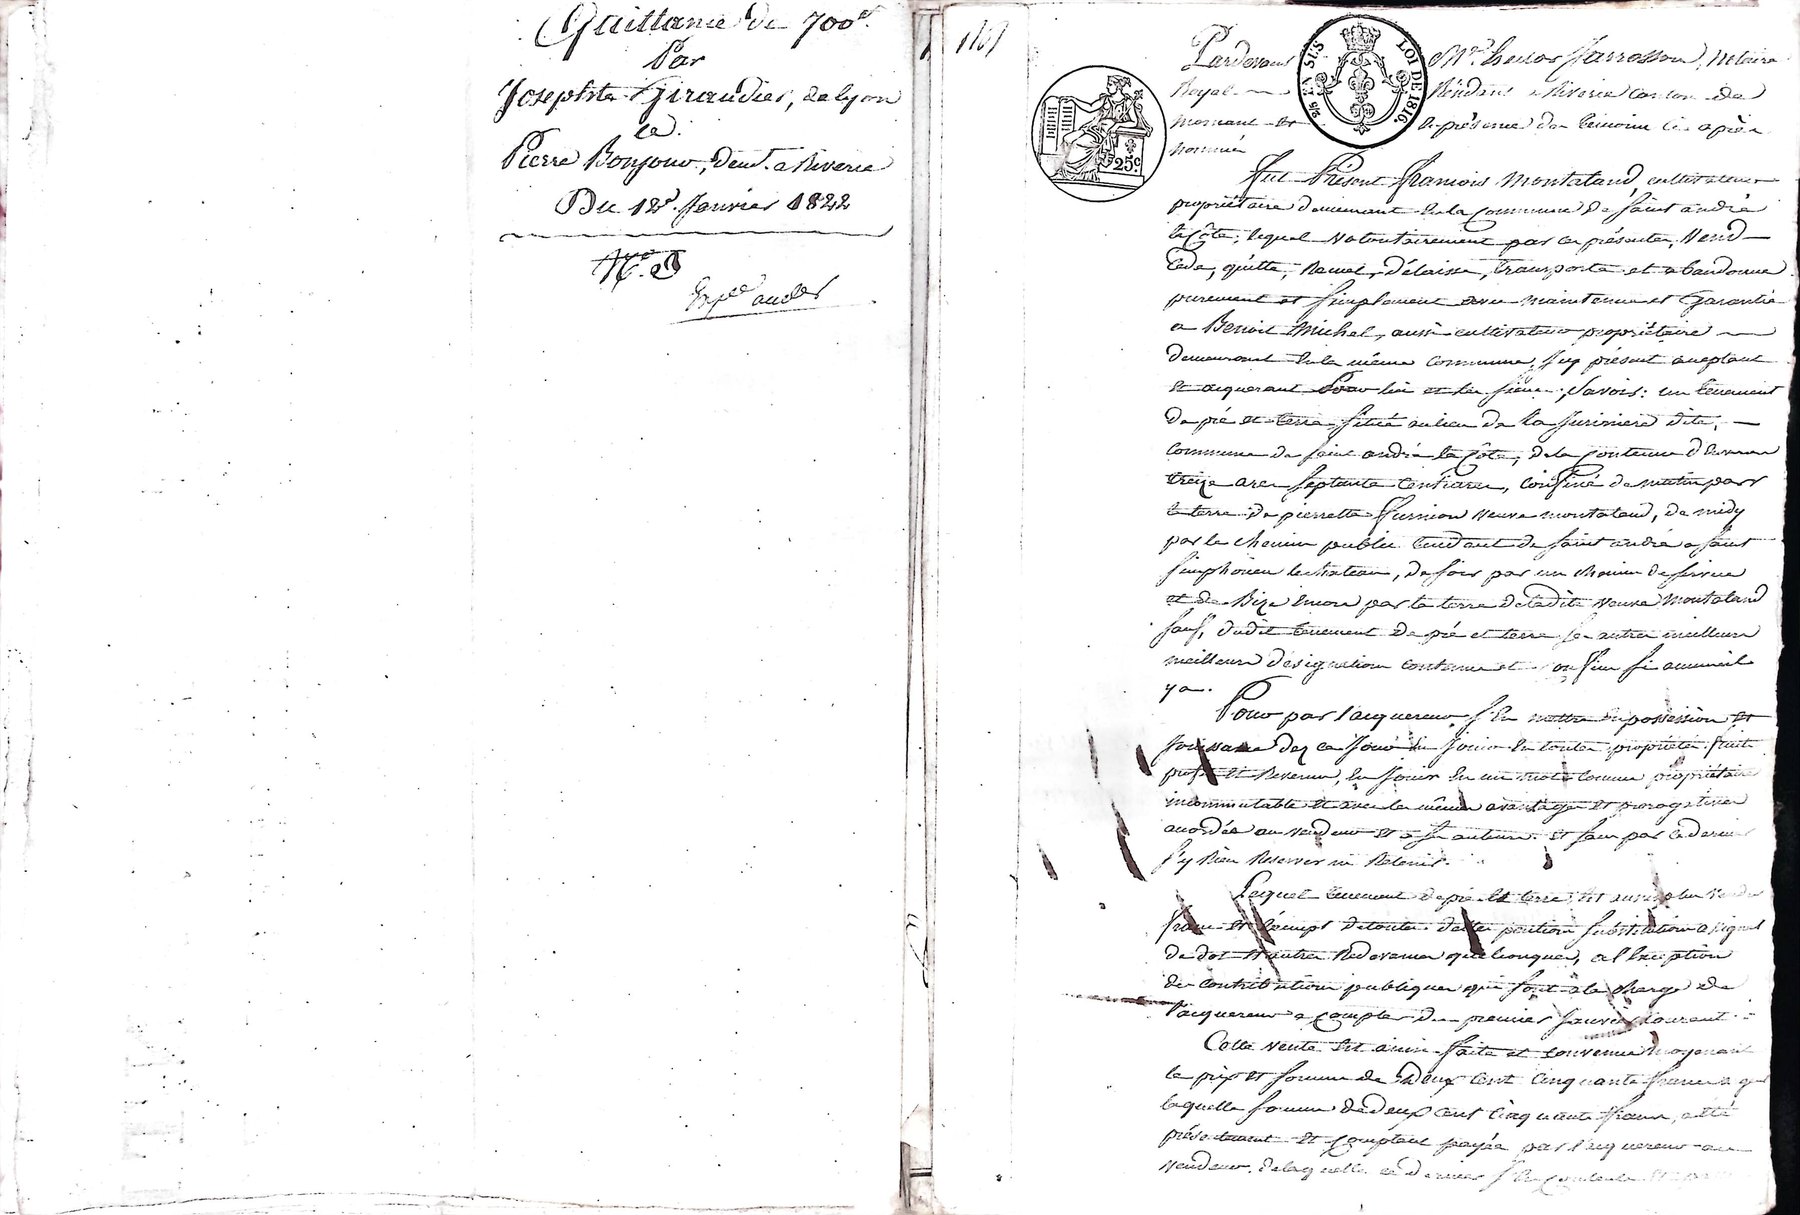 Quittance de 700f.
Par
Josephte Giraudier, de lyon
a
Pierre Bonjour, demt. a Riverie
Du 12e. Janvier 1822
N°. 
Expée aud.
LOI DE 1816.
25c.
Pardevant Me. Jarrosson, Notaire
Royal Résidant a Riverie canton de
Mornant et en présence des temoins ci après
nommés
Fut Présent françois Montaland, cultivateur
propriétaire demeurant en la Commune de Saint andré
la Côte; lequel volontairement par ces présentes, Vend
Cede, quitte, Remet, délaisse, transporte et abandonne
purement et simplement avec maintenue et Garantie
a Benoit Michel, aussi cultivateur propriétaire
demeurant en la même commune, Icy présent aceptant
et aquerant Pour lui et les siens; Savoir: un tenement
de pré et terre situé au lieu de la dite,
commune de saint andré la Côte, de la Contenue d'environ
treize ares septante Centiares, Confiné de matin par
la terre de pierrette veuve montaland, de midy
par le chemin public tendant de saint andré a saint
simphorien le chateau, de soir par un chemin de
et de Bize encore par la terre de ladite veuve Montaland
sauf, dudit tenement de pré et terre ses autres meilleurs
meilleure désignation contenue et confins si aucun il
y a.
Pour par l'acquereur s'en mettre en possession et
Jouissance dez ce Jour en Jouir en toutes propriétés fruits
profits et Revenus, en Jouir en un mot comme propriétaire
incommutable et avec les mêmes avantages et prérogatives
acordées au vendeur et a ses auteurs et sans par ce dernier
s'y Rien Reserver ni Retenir.
Lequel tenement de pré et terre est aussi
franc et Exempt de toutes dettes substitution
de dot et autres Redevances quelconques, a l'Exception
des contributions publiques qui sont a la charge de
l'acquereur a compter du premier Janvier courant
Cette vente est ainsi faite et convenue moyenant
le prix et somme de Deux cent cinquante francs
laquelle somme de deux cent cinquante francs, a été
présentement et Comptant payée par l'acquereur au
vendeur, de laquelle ce dernier s'en Contente